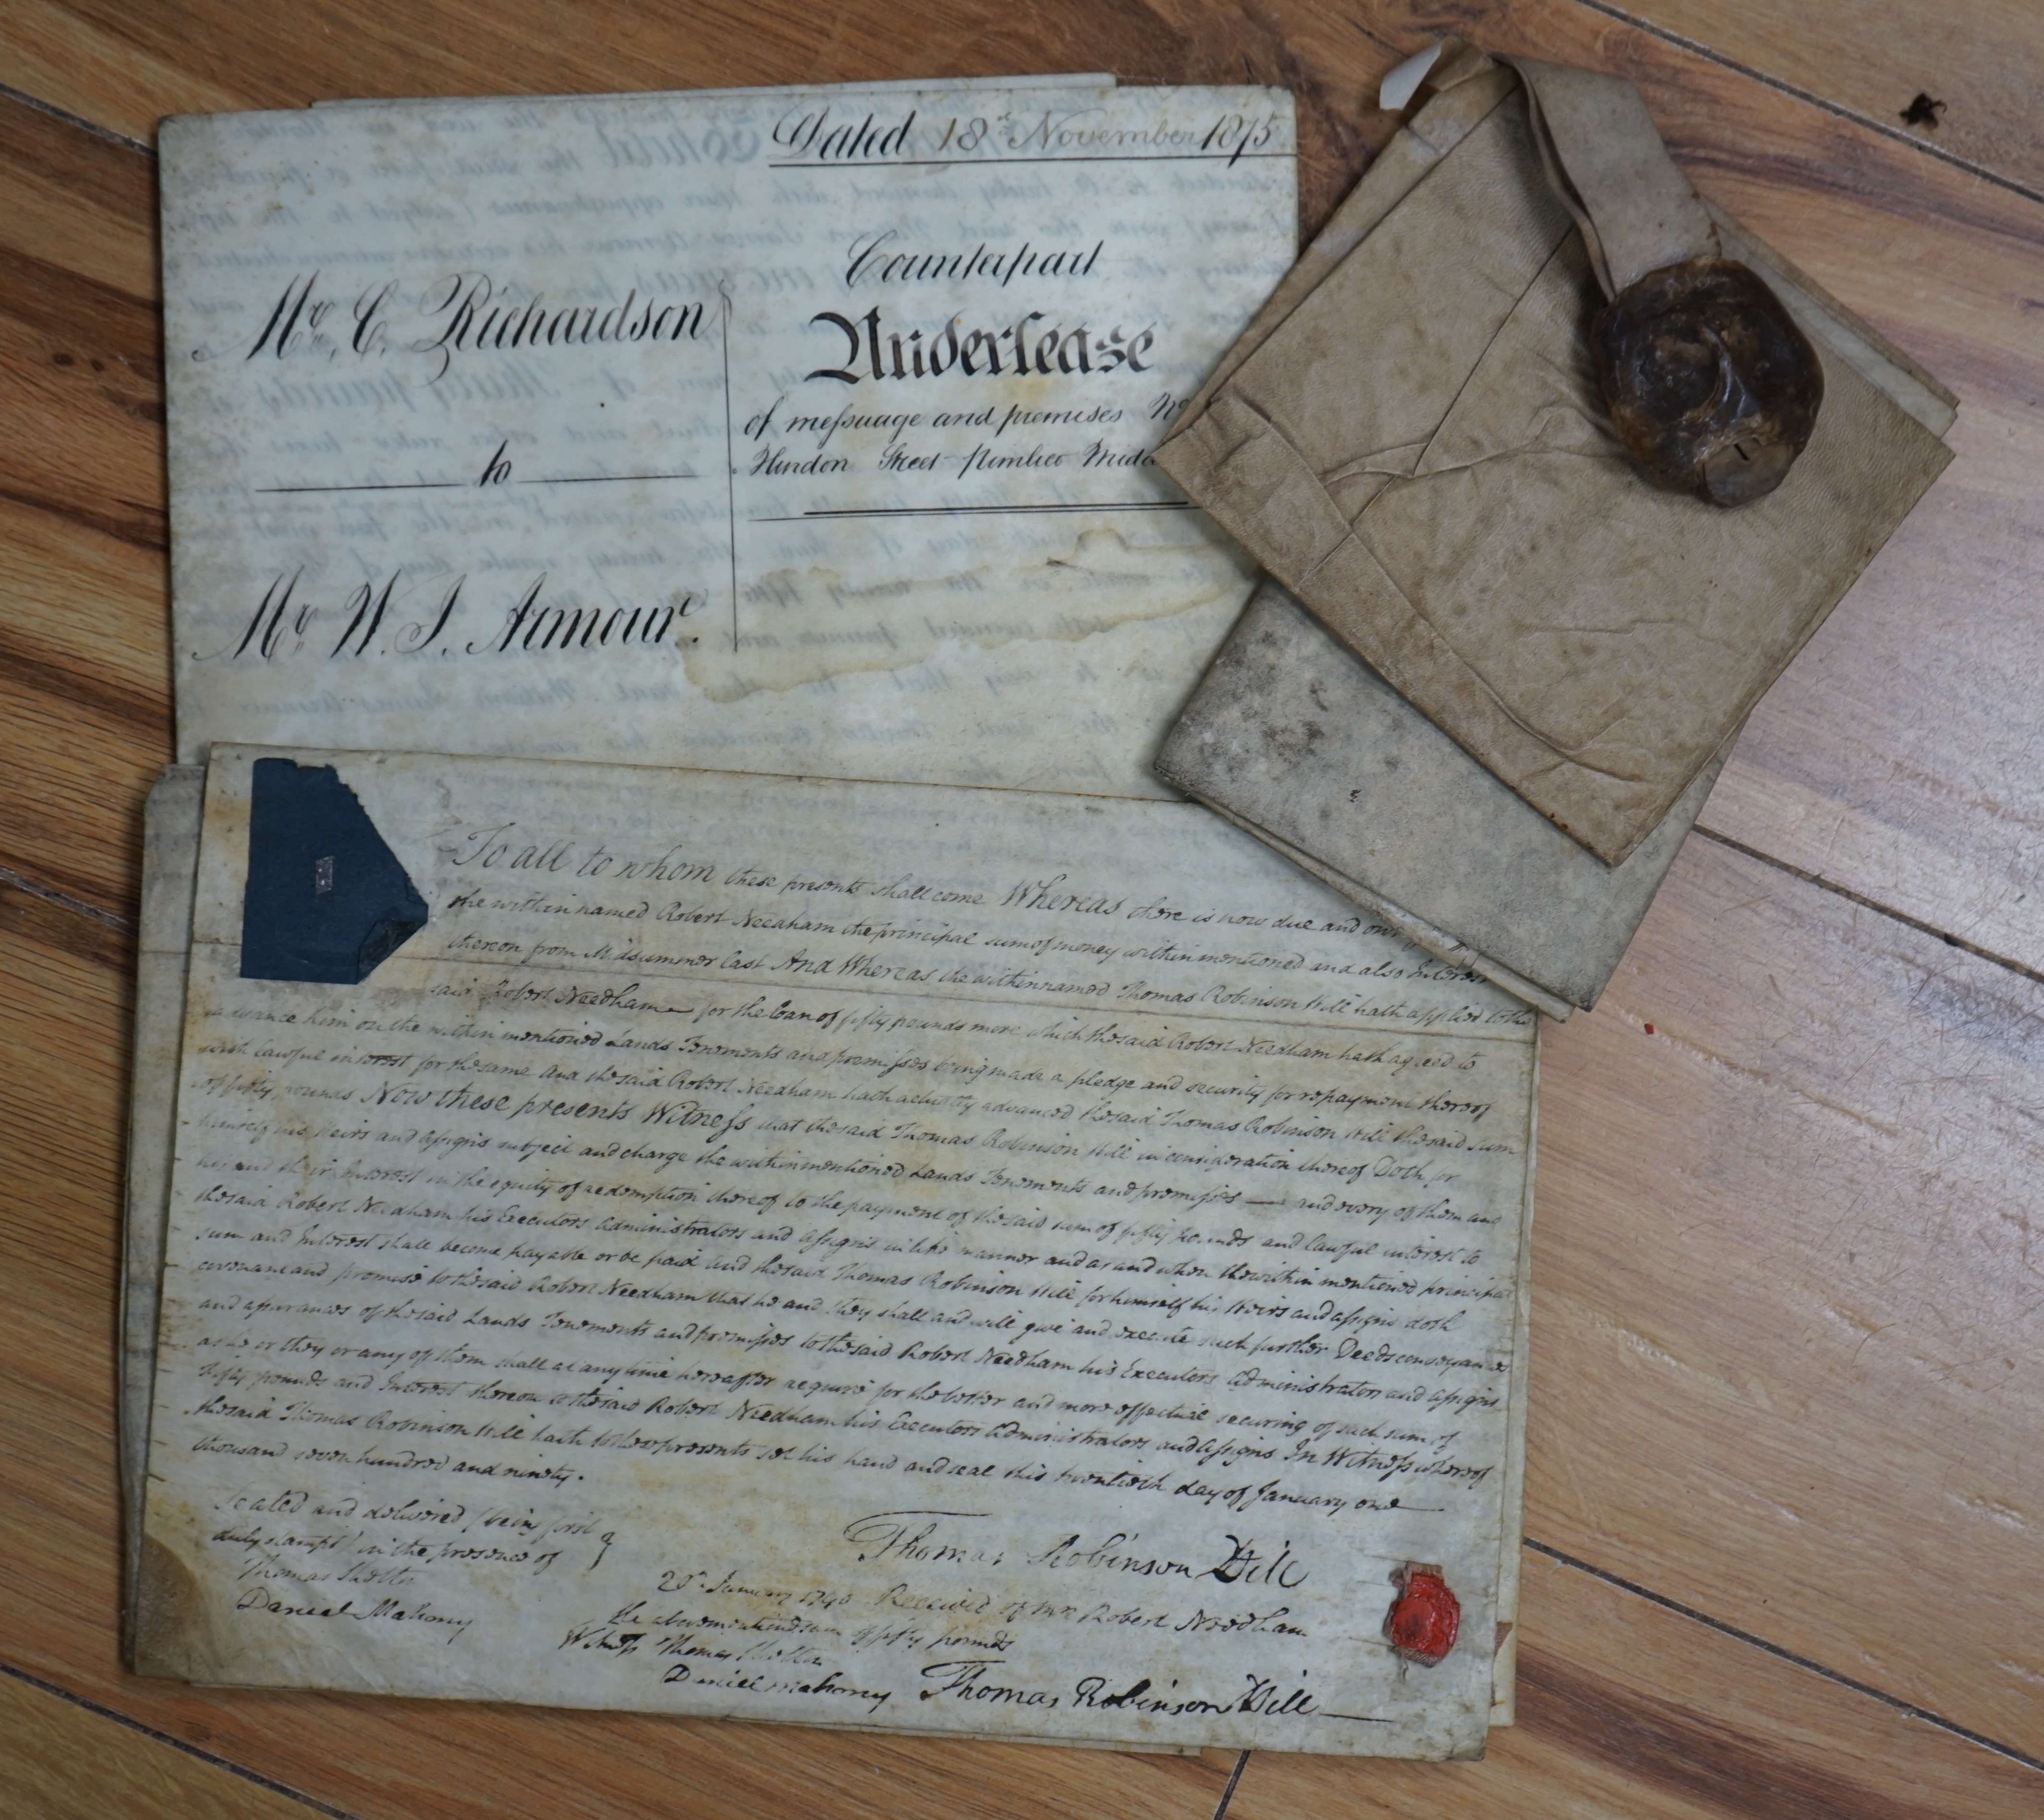 Dated 18th November 1875
Counterpart
Underlease
of messuage and premises No
Hindon Street Pimlico Midd
Mr. C. Richardson
to
Mr. W. J. Armour.
To all to whom these presents shall come Whereas there is now due and owing
the within named Robert Needham the principal sum of money within mentioned and also Interest
thereon from Midsummer last And Whereas the within named Thomas Robinson Hill hath applied to the
said Robert Needham for the Loan of fifty pounds more which the said Robert Needham hath agreed to
advance him on the within mentioned Lands Tenements and premisses being made a pledge and security for repayment thereof
with lawful interest for the same And the said Robert Needham hath actually advanced the said Thomas Robinson Hill the said sum
of fifty pounds Now these presents Witness that the said Thomas Robinson Hill in consideration thereof Doth for
himself his Heirs and Assigns subject and charge the within mentioned Lands Tenements and premisses and every of them and
his and their Interest in the equity of redemption thereof to the payment of the said sum of fifty pounds and lawful interest to
the said Robert Needham his Executors Administrators and Assigns in like manner and as and when the within mentioned principal
sum and Interest shall become payable or be paid and the said Thomas Robinson Hill for himself his Heirs and assigns doth
covenant and promise to the said Robert Needham that he and they shall and will give and execute such further Deeds conveyances
and assurances of the said Lands Tenements and premisses to the said Robert Needham his Executors Administrators and Assigns
as he or they or any of them shall at any time hereafter require for the better and more effectual securing of such sum of
Fifty pounds and Interest thereon to the said Robert Needham his Executors Administrators and Assigns In Witness whereof
the said Thomas Robinson Hill hath to these presents set his hand and seal this twentieth day of January one
thousand seven hundred and ninety.
Sealed and delivered (being first
duly stampt) in the presence of
Thomas
Daniel Mahony
Thomas Robinson Hill
20th January 1790 Received of Mr Robert Needham
the abovementioned sum of fifty pounds
Witness Thomas
Daniel Mahony
Thomas Robinson Hill